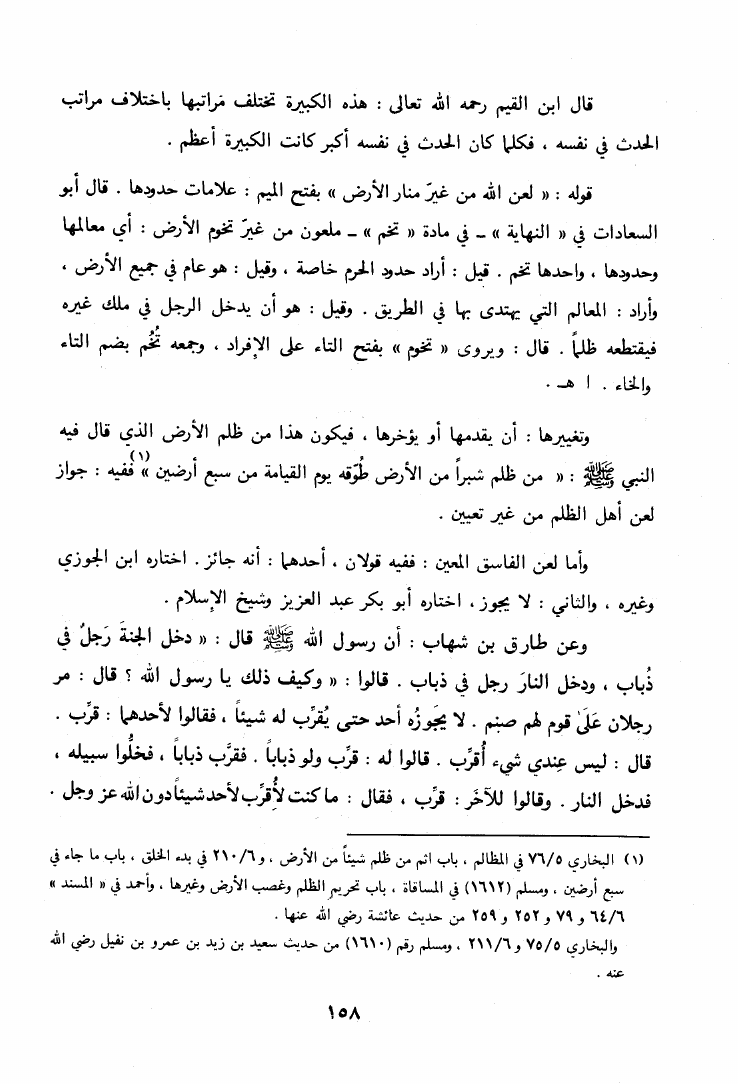 قال ابن القيم رحمه الله تعالى : هذه الكبيرة تختلف مَراتبها باختلاف مراتب
الحدث في نفسه ، فكلما كان الحدث في نفسه أكبر كانت الكبيرة أعظم .
قوله : « لعن الله من غيرّ منار الأرض » بفتح الميم : علامات حدودها . قال أبو
السعادات في « النهاية » ـ في مادة « تخم » ـ ملعون من غيرّ تخوم الأرض : أي معالمها
وحدودها ، واحدها تخم . قيل : أراد حدود الحرم خاصة ، وقيل : هو عام في جميع الأرض ،
وأراد : المعالم التي يهتدى بها في الطريق . وقيل : هو أن يدخل الرجل في ملك غيره
فيقتطعه ظلماً . قال : ويروى « تخوم » بفتح التاء على الإفراد ، وجمعه تُخُم بضم التاء
والخاء . ا هـ .
وتغييرها : أن يقدمها أو يؤخرها ، فيكون هذا من ظلم الأرض الذي قال فيه
النبي ﷺ : « من ظلم شبراً من الأرض طُوّقه يوم القيامة من سبع أرضين »(١) ففيه : جواز
لعن أهل الظلم من غير تعيين .
وأما لعن الفاسق المعين : ففيه قولان ، أحدهما : أنه جائز . اختاره ابن الجوزي
وغيره ، والثاني : لا يجوز ، اختاره أبو بكر عبد العزيز وشيخ الإسلام .
وعن طارق بن شهاب : أن رسول الله ﷺ قال : « دخل الجنةَ رَجلٌ في
ذُباب ، ودخل النارَ رجل في ذباب . قالوا : « وكيف ذلك يا رسول الله ؟ قال : مر
رجلان عَلَىٰ قوم لهم صنم . لا يجَوزُه أحد حتى يُقرِّب له شيئاً ، فقالوا لأحدهما : قرِّب .
قال : ليس عِندي شيء أُقرِّب . قالوا له : قرِّب ولو ذباباً . فقرَّب ذباباً ، فخلُّوا سبيله ،
فدخل النار . وقالوا للآخَر : قرِّب ، فقال : ما كنت لأُقرِّب لأحد شيئاً دون الله عز وجل .
(١) البخاري ٧٦/٥ في المظالم ، باب اثم من ظلم شيئاً من الأرض ، و ٢١٠/٦ في بدء الخلق ، باب ما جاء في
سبع أرضين ، ومسلم (١٦١٢) في المساقاة ، باب تحريم الظلم وغصب الأرض وغيرها ، وأحمد في « المسند »
٦٤/٦ و ٧٩ و ٢٥٢ و ٢٥٩ من حديث عائشة رضي الله عنها .
والبخاري ٧٥/٥ و ٢١١/٦ ، ومسلم رقم (١٦١٠) من حديث سعيد بن زيد بن عمرو بن نفيل رضي الله
عنه .
١٥٨